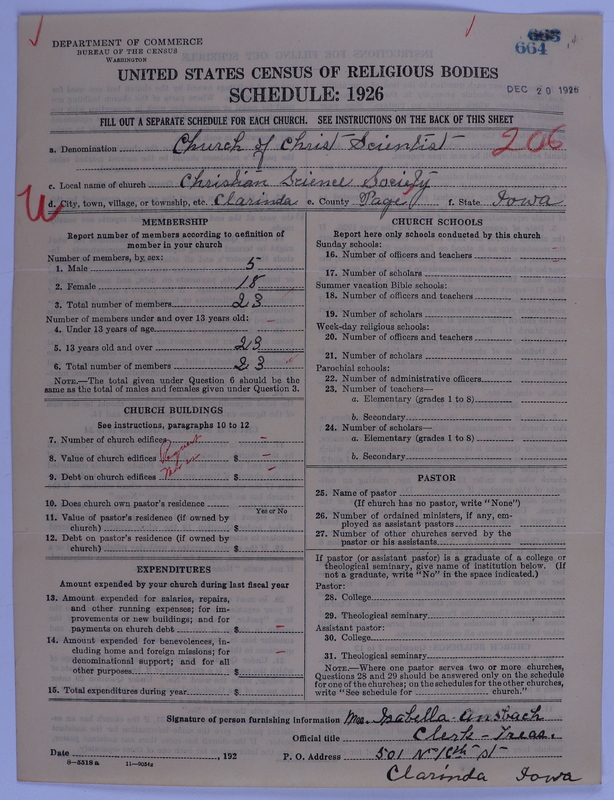 DEPARTMENT OF COMMERCE
BUREAU OF THE CENSUS
WASHINGTON
664
UNITED STATES CENSUS OF RELIGIOUS BODIES
SCHEDULE: 1926
DEC 20 1926
FILL OUT A SEPARATE SCHEDULE FOR EACH CHURCH. SEE INSTRUCTIONS ON THE BACK OF THIS SHEET
a. Denomination Church of Christ Scientist 206
c. Local name of church Christian Science Society
d. City, town, village, or township, etc. Clarinda e. County Page f. State Iowa
MEMBERSHIP
Report number of members according to definition of
member in your church
Number of members, by sex:
1. Male 5
2. Female 18
3. Total number of members 23
Number of members under and over 13 years old:
4. Under 13 years of age –
5. 13 years old and over 23
6. Total number of members 23
NOTE.—The total given under Question 6 should be the
same as the total of males and females given under Question 3.
CHURCH BUILDINGS
See instructions, paragraphs 10 to 12
7. Number of church edifices –
8. Value of church edifices $ –
9. Debt on church edifices $ –
10. Does church own pastor's residence
Yes or No
11. Value of pastor's residence (if owned by
church) $
12. Debt on pastor's residence (if owned by
church) $
EXPENDITURES
Amount expended by your church during last fiscal year
13. Amount expended for salaries, repairs,
and other running expenses; for im-
provements or new buildings; and for
payments on church debt $ –
14. Amount expended for benevolences, in-
cluding home and foreign missions; for
denominational support; and for all
other purposes $ –
15. Total expenditures during year $
CHURCH SCHOOLS
Report here only schools conducted by this church
Sunday schools:
16. Number of officers and teachers
17. Number of scholars
Summer vacation Bible schools:
18. Number of officers and teachers
19. Number of scholars
Week-day religious schools:
20. Number of officers and teachers
21. Number of scholars
Parochial schools:
22. Number of administrative officers
23. Number of teachers—
a. Elementary (grades 1 to 8)
b. Secondary
24. Number of scholars—
a. Elementary (grades 1 to 8)
b. Secondary
PASTOR
25. Name of pastor
(If church has no pastor, write "None")
26. Number of ordained ministers, if any, em-
ployed as assistant pastors
27. Number of other churches served by the
pastor or his assistants
If pastor (or assistant pastor) is a graduate of a college or
theological seminary, give name of institution below. (If
not a graduate, write "No" in the space indicated.)
Pastor:
28. College
29. Theological seminary
Assistant pastor:
30. College
31. Theological seminary
NOTE.—Where one pastor serves two or more churches,
Questions 28 and 29 should be answered only on the schedule
for one of the churches; on the schedules for the other churches,
write "See schedule for church."
Signature of person furnishing information Mrs. Isabella Ansbach
Official title Clerk - Treas.
Date , 192 P. O. Address 501 N 16th St
8—5518a 11—9054a
Clarinda Iowa